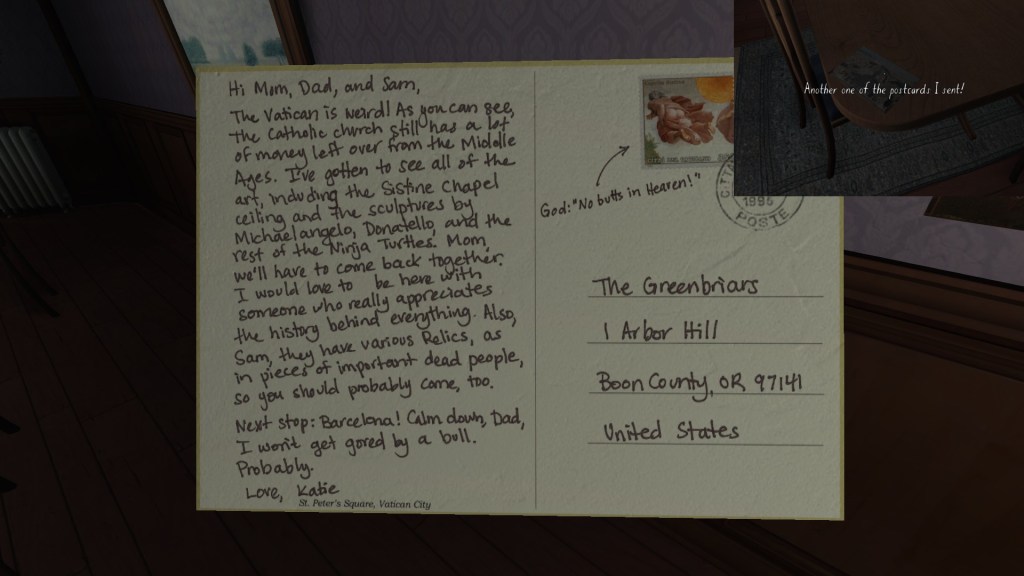 Hi Mom, Dad, and Sam,
The Vatican is weird! As you can see,
the Catholic church still has a lot
of money left over from the Middle
Ages. I've gotten to see all of the
art, including the Sistine Chapel
ceiling and the sculptures by
Michaelangelo, Donatello, and the
rest of the Ninja Turtles. Mom,
we'll have to come back together.
I would love to be here with
someone who really appreciates
the history behind everything. Also,
Sam, they have various Relics, as
in pieces of important dead people,
so you should probably come, too.
Next stop: Barcelona! Calm down, Dad,
I won't get gored by a bull.
Probably.
Love, Katie
St. Peter's Square, Vatican City
God: "No butts in Heaven!"
1995
POSTE
The Greenbriars
1 Arbor Hill
Boon County, OR 97141
United States
Another one of the postcards I sent!